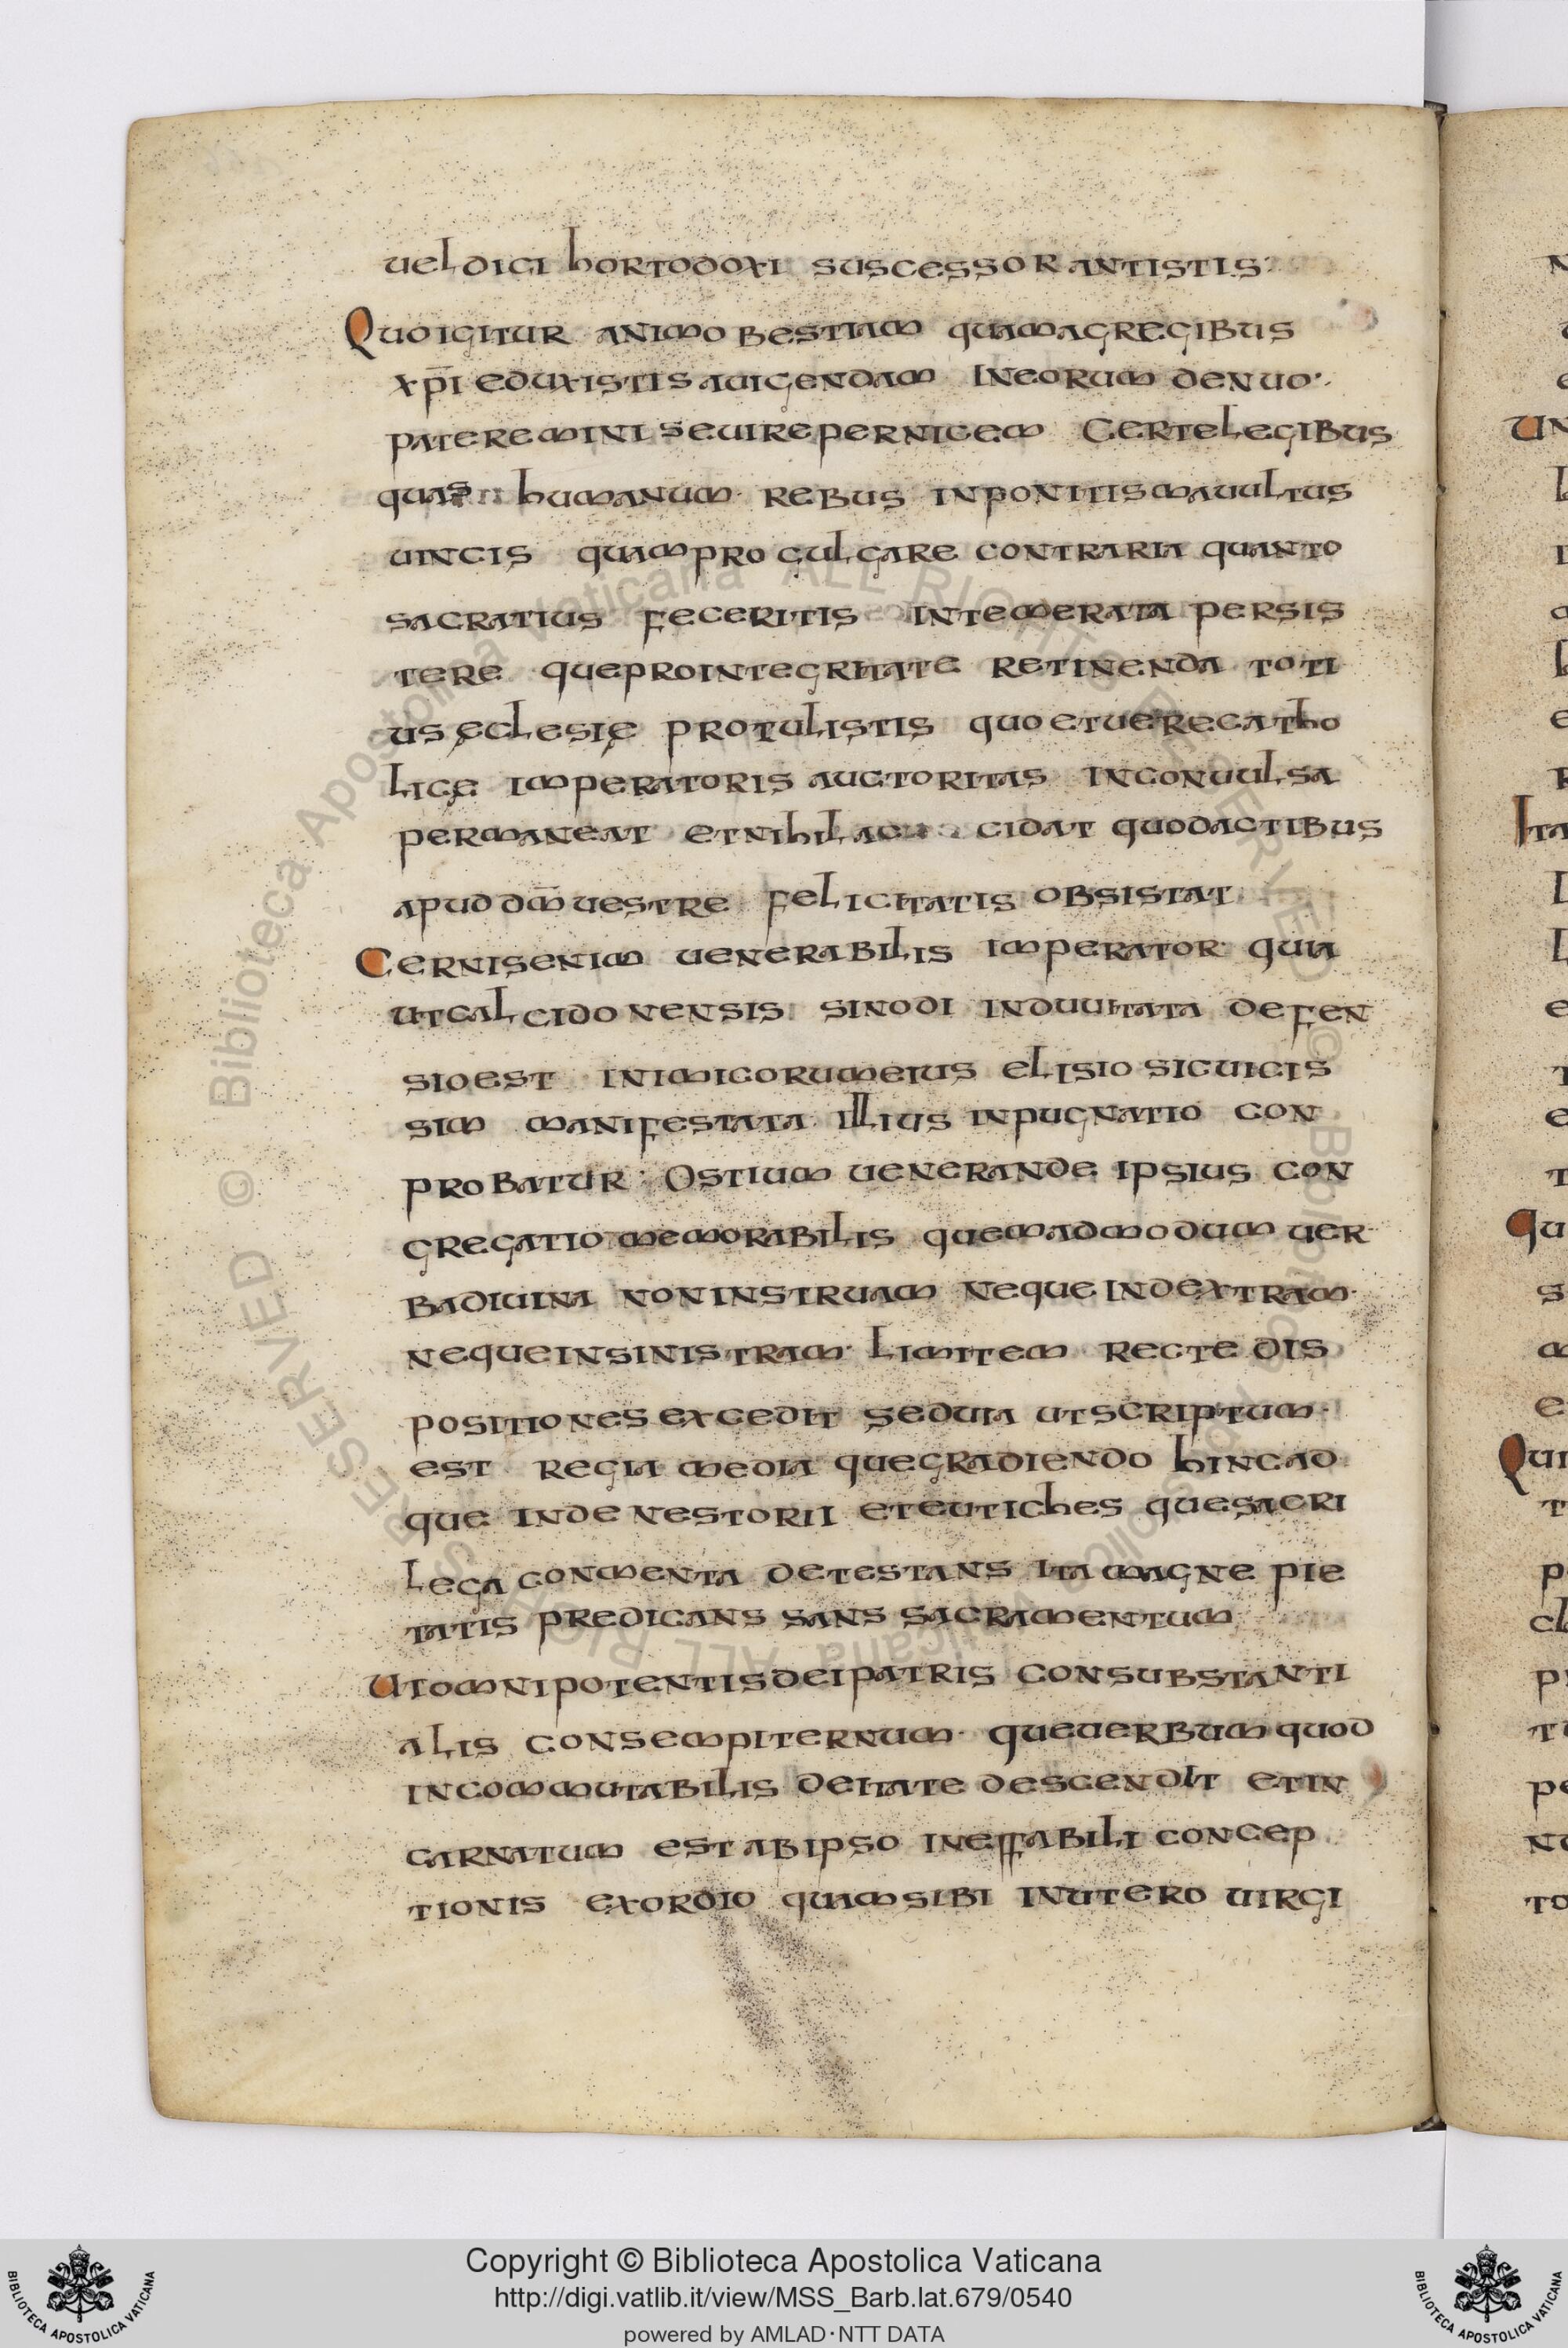 uel dici hortodoxi suscessor antistis
Quo igitur animo bestiam quam a gregibus
xp̄i eduxistis auigendam In eorum denuo
pateremini seuire pernicem Certe legibus
quas humanum rebus inponitis mauultus
uincis quam proculgare contraria quanto
sacratius feceritis intemerata persis
tere que pro integritate retinenda toti
us ęclesię protulistis quo et uere catho
licę imperatoris auctoritas inconuulsa
permaneat et nihil ac cidat quod actibus
apud dm̄ uestre felicitatis obsistat
Cernis enim uenerabilis imperator quia
ut calcidonensis sinodi induuitata defen
sio est inimicorum eius elisio sic uicis
sim manifestata illius inpugnatio con
probatur Ostium uenerande ipsius con
gregatio memorabilis quemadmodum uer
ba diuina non instruam neque In dextram
neque in sinistram limitem recte dis
positiones excedit sed uia ut scriptum
est regia media que gradiendo hinc ad
que inde nestorii et eutiches que sacri
lega conmenta detestans ita magne pie
tatis predicans sans sacramentum
Ut omnipotentis dei patris consubstanti
alis consempiternum que uerbum quod
incommutabilis deitate descendit et in
carnatum est ab ipso ineffabili concep
tionis exordio quam sibi in utero uirgi
© Biblioteca Apostolica Vaticana ALL RIGHTS RESERVED
Copyright © Biblioteca Apostolica Vaticana
http://digi.vatlib.it/view/MSS_Barb.lat.679/0540
powered by AMLAD·NTT DATA
BIBLIOTECA APOSTOLICA VATICANA
BIBLIOTECA APOSTOLICA VATICANA